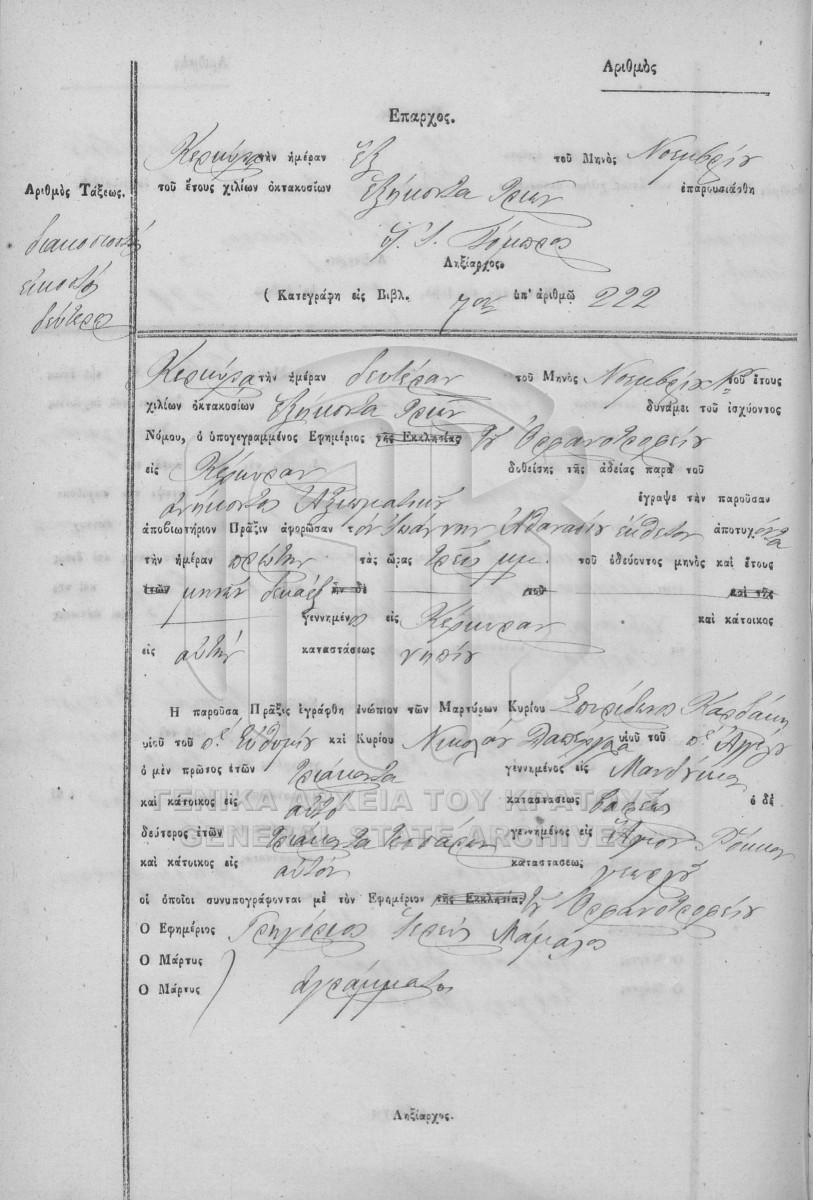 Αριθμὸς
Επαρχος.
Κερκύρα τὴν ἡμέραν ἕξ τοῦ Μηνὸς Νοεμβρίου
Αριθμὸς Τάξεως. τοῦ ἔτους χιλίων ὀκτακοσίων ἑξήκοντα τριῶν ἐπαρουσιάσθη
διακοσιοστὸς
εἰκοστὸς
δεύτερος
Ληξίαρχος.
( Κατεγράφη εἰς Βιβλ. 7ον ὑπ' ἀριθμῶ 222
Κερκύρα τὴν ἡμέραν δευτέραν τοῦ Μηνὸς Νοεμβρίου τοῦ ἔτους
χιλίων ὀκτακοσίων ἑξήκοντα τριῶν δυνάμει τοῦ ἰσχύοντος
Νόμου, ὁ ὑπογεγραμμένος Εφημέριος τῆς Εκκλησίας τοῦ Ὀρφανοτροφείου
εἰς Κέρκυραν δοθείσης τῆς ἀδείας παρὰ τοῦ
ἀνήκοντος Ἀξιωματικοῦ ἔγραψε τὴν παροῦσαν
ἀποβιωτήριον Πρᾶξιν ἀφορῶσαν τὸν Ἰωάννην Ἀθανασίου ἔκθετον ἀποτυχόντα
τὴν ἡμέραν πρώτην τὰς ὥρας τρεῖς μμ. τοῦ ὁδεύοντος μηνὸς καὶ ἔτους
ἐτῶν μηνῶν δεκαὲξ ἦν δὲ τοῦ καὶ τῆς
γεννημένος εἰς Κέρκυραν καὶ κάτοικος
εἰς αὐτὴν καταστάσεως νηπίου
Η παροῦσα Πρᾶξις ἐγράφθη ἐνώπιον τῶν Μαρτύρων Κυρίου Σπυρίδωνος Καρδάκη
υἱοῦ τοῦ πο Εὐθυμίου καὶ Κυρίου Νικολάου υἱοῦ τοῦ πο Ἀγγέλου
ὁ μὲν πρῶτος ἐτῶν τριάκοντα γεννημένος εἰς Μανδούκιον
καὶ κάτοικος εἰς αὐτὸ καταστάσεως βαφέως ὁ δὲ
δεύτερος ἐτῶν τριάκοντα τεσσάρων γεννημένος εἰς Ἅγιον Ῥόκκον
καὶ κάτοικος εἰς αὐτὸν καταστάσεως γεωργοῦ
οἱ ὁποῖοι συνυπογράφονται μὲ τὸν Εφημέριον τῆς Εκκλησίας τοῦ Ὀρφανοτροφείου
Ο Εφημέριος Γρηγόριος Ἱερεὺς Μάμαλος
Ο Μάρτυς
Ο Μάρτυς ἀγράμματοι
Ληξίαρχος.
ΓΕΝΙΚΑ ΑΡΧΕΙΑ ΤΟΥ ΚΡΑΤΟΥΣ
GENERAL STATE ARCHIVES